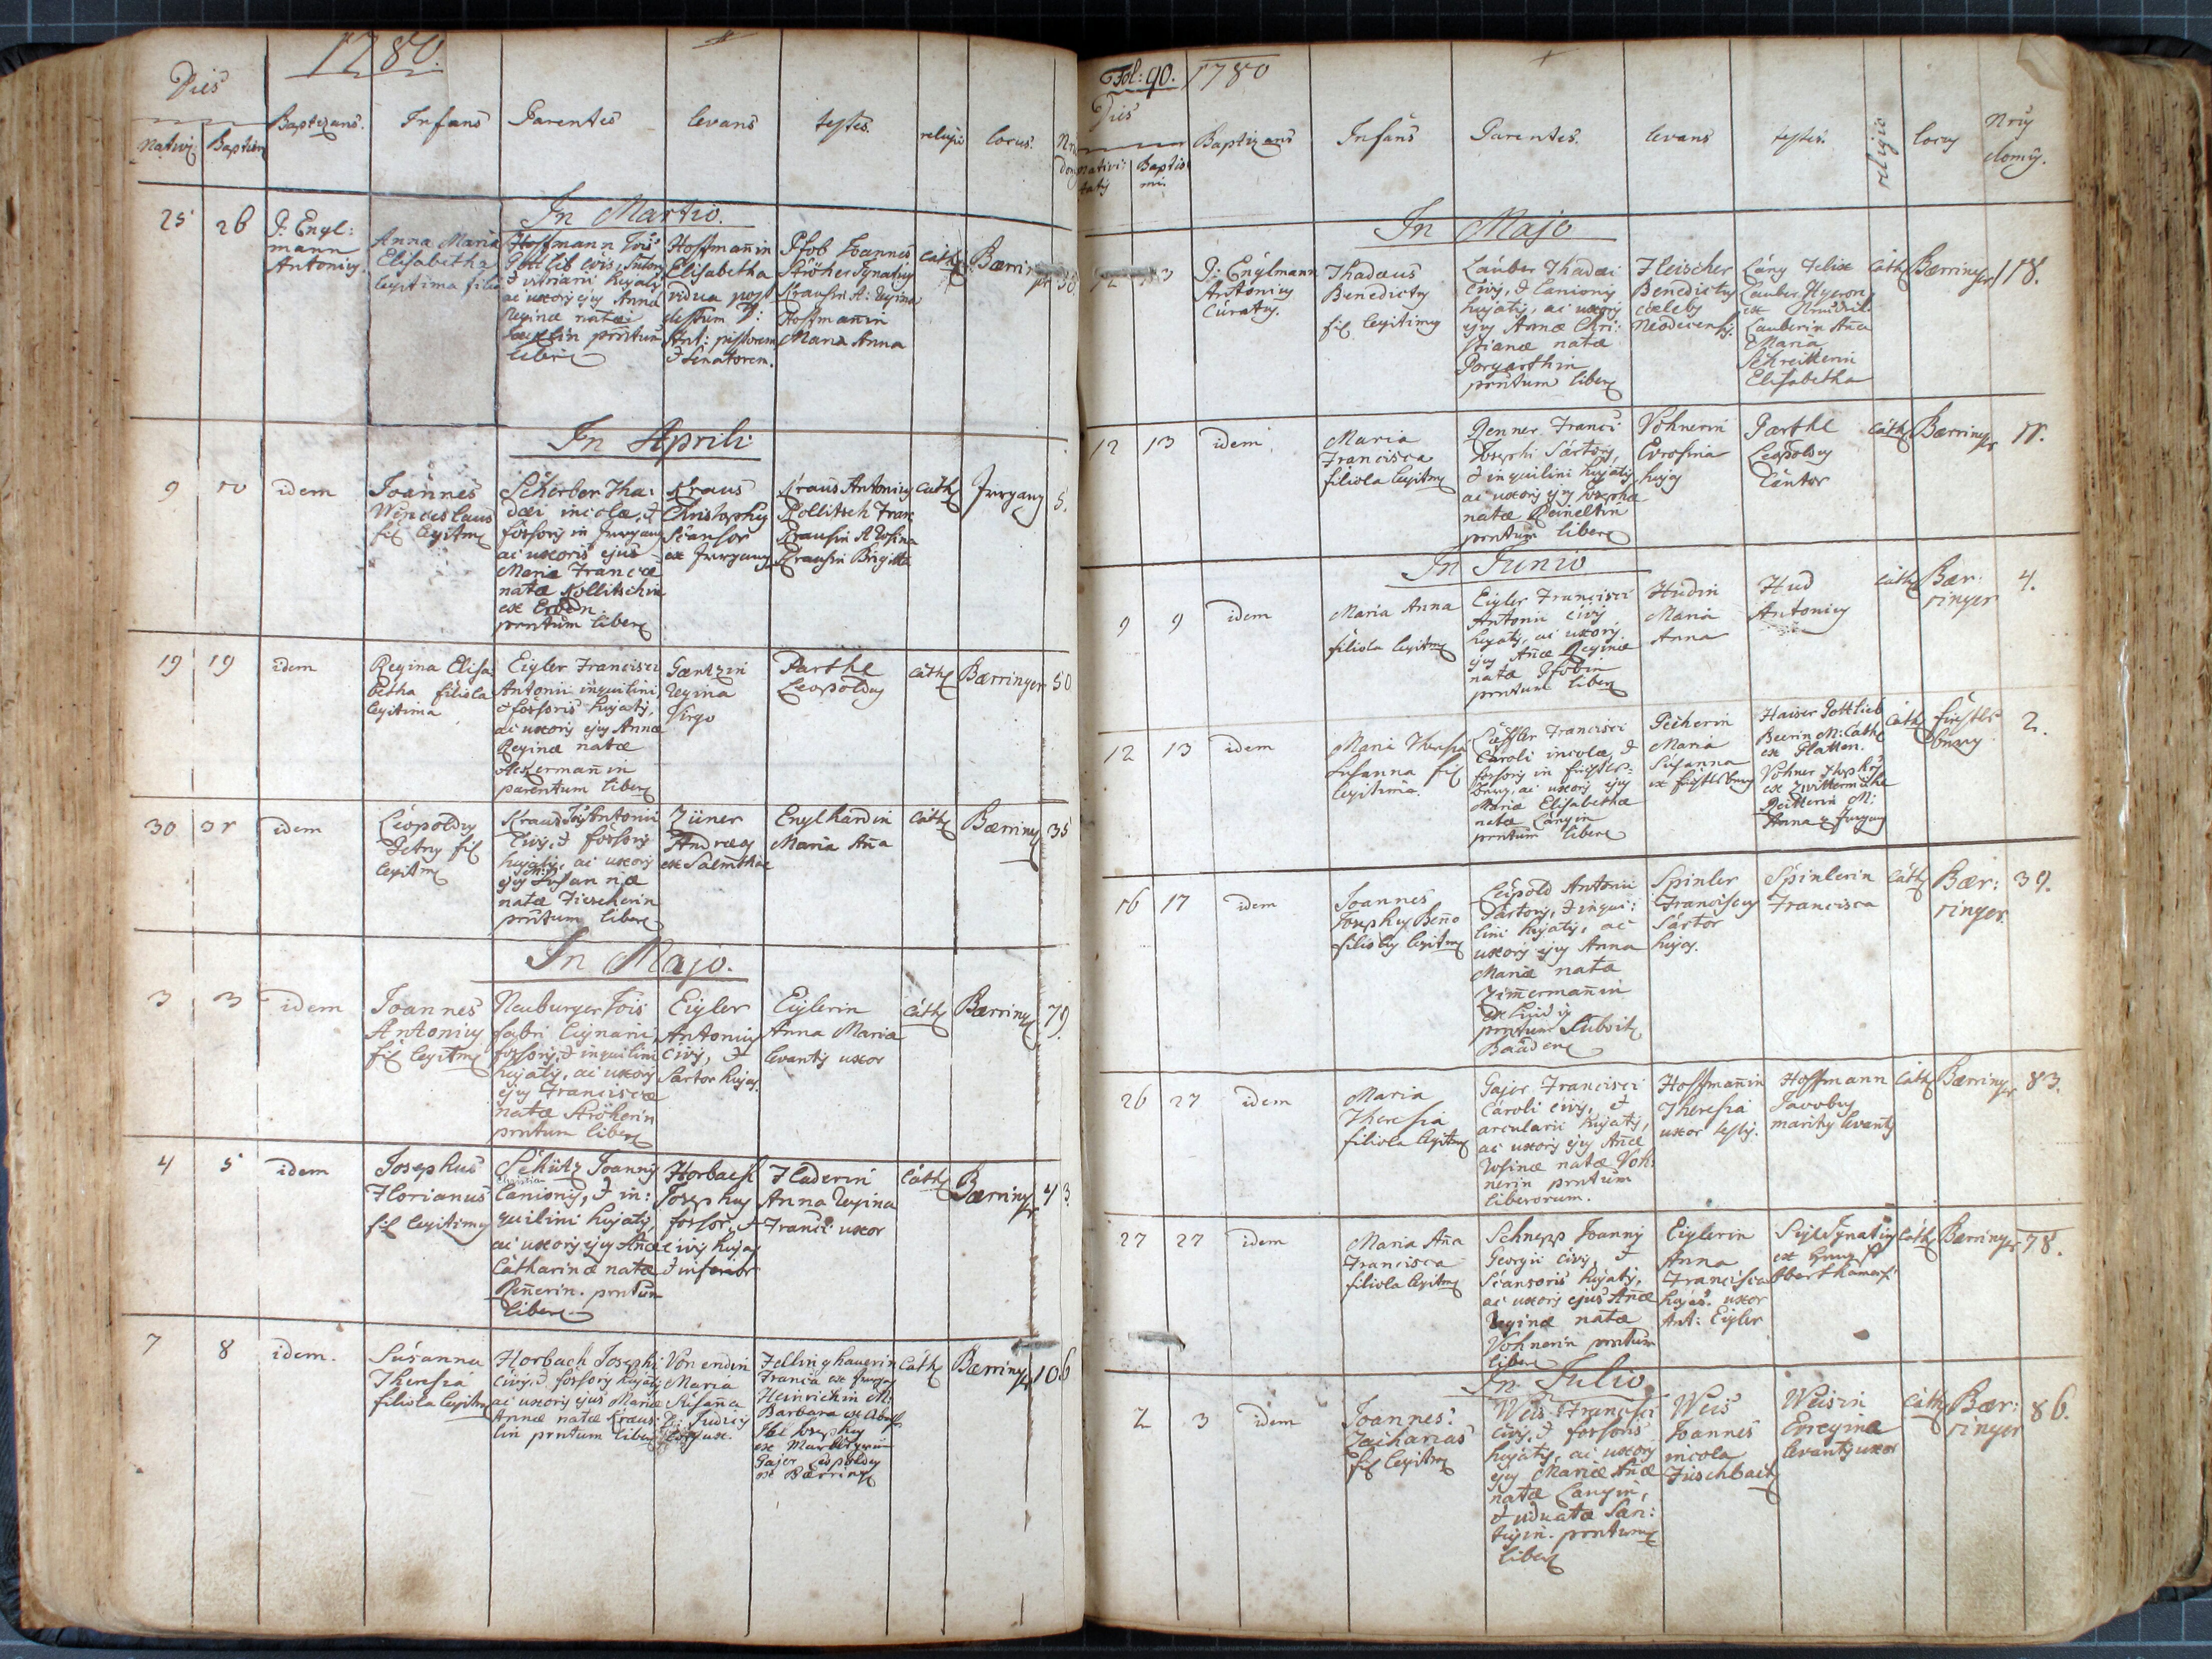 1780.
Dies
Nativi: Baptism
Baptizans.
Infans
Parentes
levans
testes.
religio
locus.
In Martio.
25 26
P. Engl:
mann
Antonius
Anna Maria
Elisabetha
legitima filia
Hoffmann Jois
Gottlib civis,
ac uxoris ejus Anna
Reginæ natæ
prntum
liberæ
Hoffmañin
Elisabetha
vidua post
Ant: pistorem
& Senatorem.
Pfob Joannes
Ströher Ignatius
Krausin A: Regina
Hoffmañin
Maria Anna
Cath
Bærringer
50
In Aprili
9 10
idem
Joannes
Wenceslaus
fil legitimus
Scherber Tha:
dæi incolæ, &
fossoris in Irrgang
ac uxoris ejus
Mariæ Francæ
natæ Kollitschin
ex
prntum liberæ
Kraus
Christophus
Scansor
ex Irrgang
Kraus Antonius
Kollitsch Franc
Krausin A Rosina
Krausin Brigitta
Cath
Irrgang
5.
19 19
idem
Regina Elisa:
betha filiola
legitima
Eigler Francisci
Antonii inquilini
& fossoris hujatis,
ac uxoris ejus Annæ
Reginæ natæ
Akermañin
parentum liberæ
Gæntzin
Regina
Virgo
Parthe
Leopoldus
Cath
Bærringer
50
30 31
idem
Leopoldus
Petrus fil
legitimus
Kraus Jois Antonii
civis, & fossoris
hujatis, ac uxoris
ejus Susannæ
natæ Fischerin
prntum liberæ
Ziener
Andreas
ex Salmthal
Englhardin
Maria Aña
Cath
Bærring
35
In Majo.
3 3
idem
Joannes
Antonius
fil legitimus
Neuburger Jois
fabri lignarii
fossoris, & inquilini
hujatis, ac uxoris
ejus Franciscæ
natæ Ströherin
prntum liberæ
Eigler
Antonius
civis, &
Sartor hujas.
Eiglerin
Anna Maria
levantis uxor
Cath
Bærring
79.
4 5
idem
Josephus
Florianus
fil legitimus
Schütz Joannis
Christian
Lanionis, & in:
quilini hujatis,
ac uxoris ejus Añæ
Catharinæ natæ
Reñerin. prntum
liberæ
Horbach
Josephus
fossor, &
civis hujas
& inferior
Fladerin
Anna Regina
Franci: uxor
Cath
Bærringer
43.
7 8
idem.
Susanna
Theresia
filiola legitima
Horbach Josephi
civis, & fossoris hujatis
ac uxoris ejus Mariæ
Annæ natæ Kraus:
lin prntum liberæ
Von endin
Maria
Susaña
D: Judicis
ux.
Fellinghauerin
Francia ex Irrgang
Heinrichin M:
Barbara ex
Josephus
ex
Gajer Leopoldus
ex Bærring
Cath
Bærringer
106
Fol: 90. 1780
Dies
nativi:
tatis
Baptis
mi.
Baptizans
Infans
Parentes.
levans
testes.
religio
locus
Nrus
domus.
In Majo
12 13
P: Englmann
Antonius
Curatus.
Thadæus
Benedictus
fil legitimus
Lauber Thadæi
civis, & Lanionis
hujatis, ac uxoris
ejus Annæ Chri:
stianæ natæ
Porgarthin
prntum liberæ
Fleischer
Benedictus
cælebs
Neodecensis.
Lang Felix
Lauber Hyeron
ex
Lauberin Aña
Maria
Schreitterin
Elisabetha
Cath
Bærringer
118.
12 13
idem
Maria
Francisca
filiola legitima
Renner Franci
Josephi Sartoris,
& inquilini hujatis,
ac uxoris ejus Josephæ
natæ Reineltin
prntum liberæ
Vohnerin
Evrosina
hujas
Parthe
Leopoldus
Cantor
Cath
Bærringer
11.
In Junio
9 9
idem
Maria Anna
filiola legitima
Eigler Francisci
Antonii civis
hujatis, ac uxoris
ejus Añæ Reginæ
natæ Pfobin
prntum liberæ
Hudin
Maria
Anna
Hud
Antonius
Cath
Bær:
ringer
4.
12 13
idem
Maria Theresia
Susanna fil
legitima.
Löffler Francisci
Caroli incolæ, &
fossoris in
ac uxoris ejus
Mariæ Elisabethæ
natæ Langin
prntum liberæ
Pecherin
Maria
Susanna
ex
Haiser Gottlieb
Beerin M: Cath
ex Platten.
Vohner Josephus
ex Zwittermühl
Reitterin M:
Anna ex Irrgang
Cath
2.
16 17
idem
Joannes
Josephus Beño
filiolus legitimus
Leopold Antonii
Sartoris, & inqui:
lini hujatis, ac
uxoris ejus Anna
Mariæ natæ
Zimermañin
prntum
Spinler
Franciscus
Sartor
hujas.
Spinlerin
Francisca
Cath
Bær:
ringer.
39.
26 27
idem
Maria
Theresia
filiola legitima
Gajer Francisci
Caroli civis, &
arcularii hujatis,
ac uxoris ejus Añæ
Rosinæ natæ Voh:
nerin prntum
liberorum.
Hoffmañin
Theresia
uxor testis.
Hoffmann
Jacobus
maritus levantis
Cath
Bærringer
83.
27 27
idem
Maria Aña
Francisca
filiola legitima
Schnepp Joannis
Georgii civis, &
Scansoris hujatis,
ac uxoris ejus Añæ
Reginæ natæ
Vohnerin prntum
liberæ
Eiglerin
Anna
Francisca
hujas. uxor
Ant: Eigler
Ignatius
ex
Cath
Bærringer
78.
In Julio
2 3
idem
Joannes
Zacharias
fil legitimus
Weis Francisci
civis, & fossoris
hujatis, ac uxoris
ejus Mariæ Añæ
natæ Langin,
& viduatæ San:
prntum
liberæ
Weis
Joannes
incola
Fischbach
Weisin
Evregina
levantis uxor
Cath
Bær:
ringer
86.